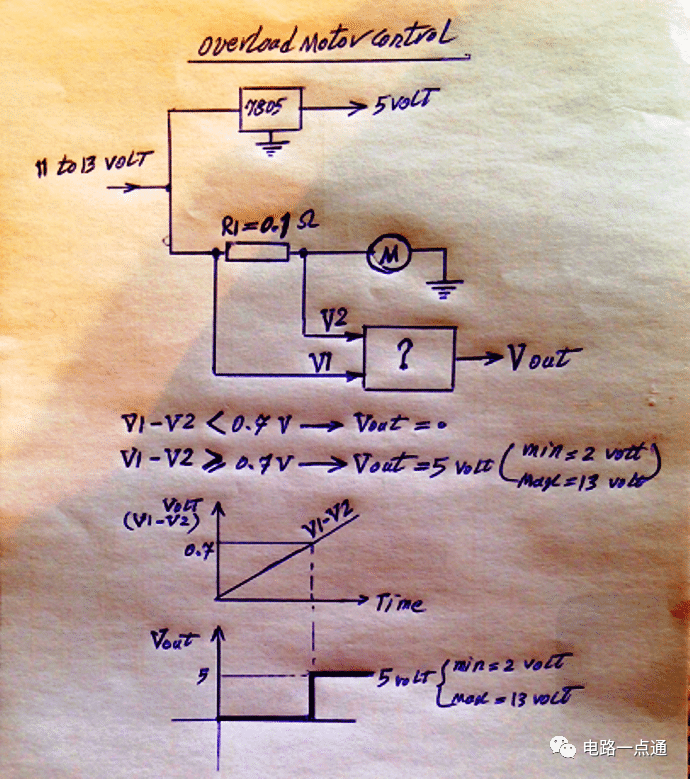 Overload Motor control
7805
5 VOLT
11 to 13 VOLT
R1=0.1 Ω
M
V2
V1
?
Vout
V1-V2 < 0.7 V → Vout = 0
V1-V2 ⩾ 0.7V → Vout = 5 volt (min = 2 volt
max = 13 volt)
Volt
(V1-V2)
V1-V2
0.7
Time
Vout
5
5 volt { min = 2 volt
max = 13 volt
电路一点通